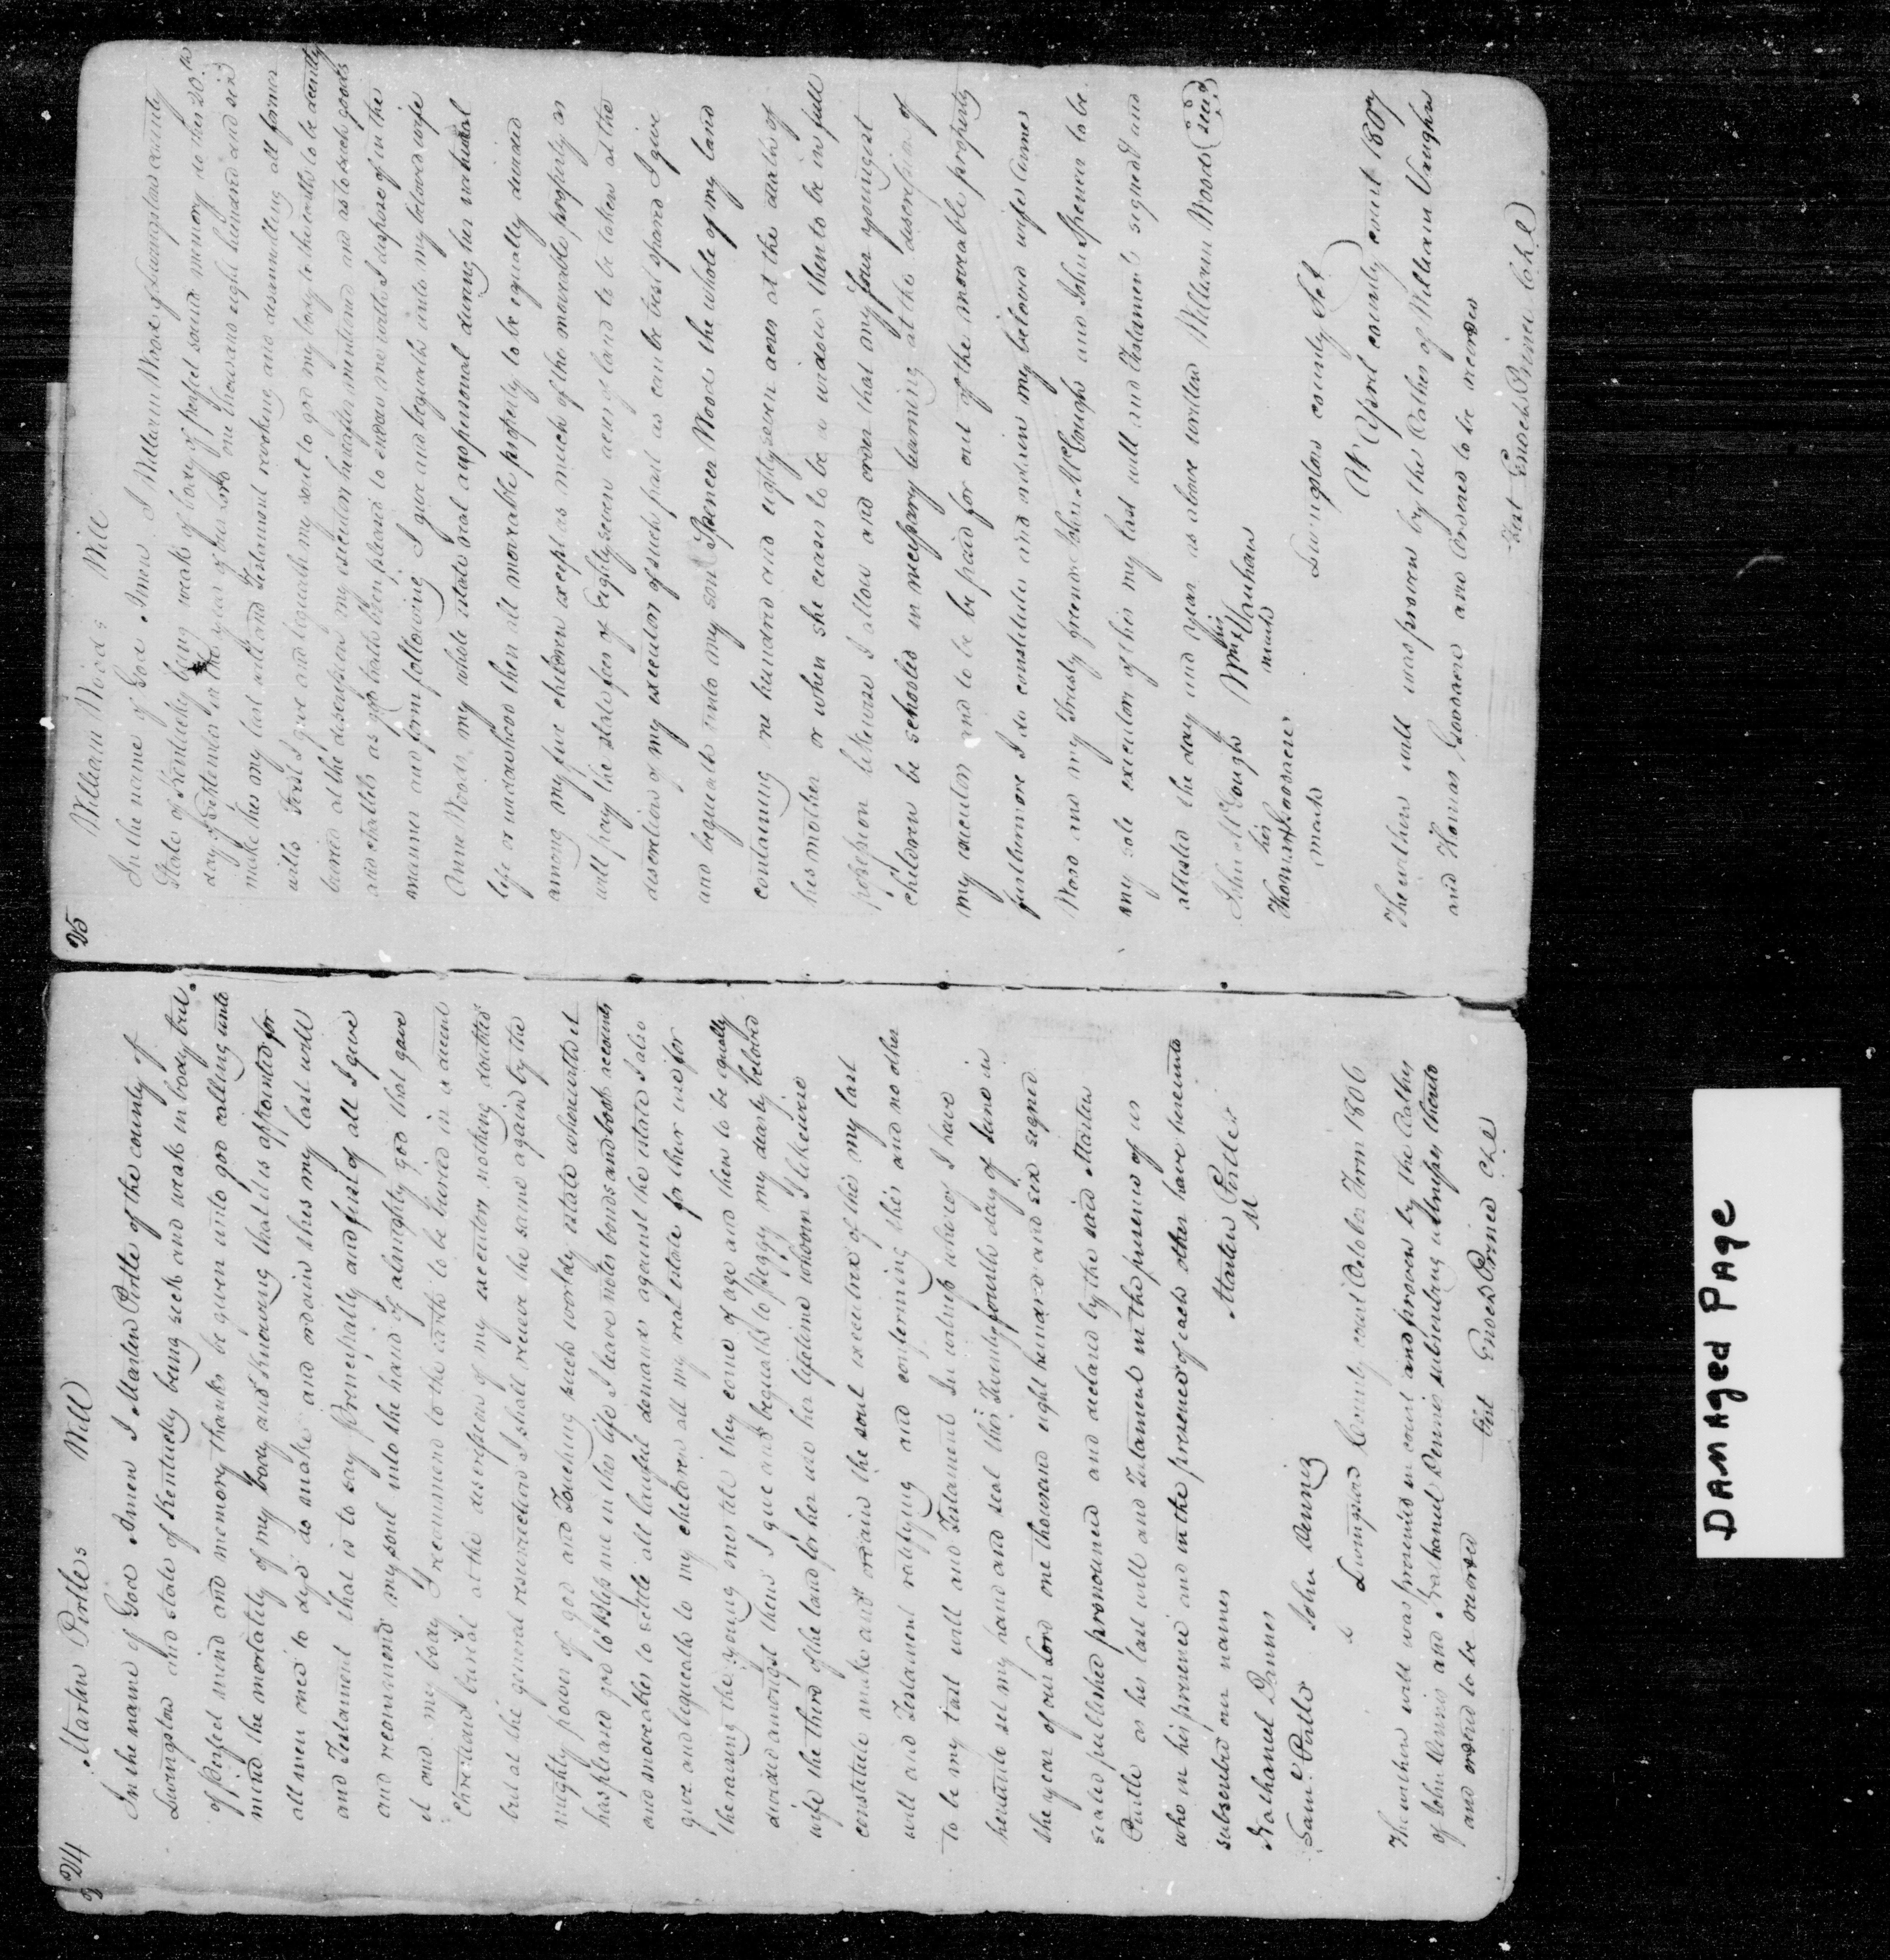 24
Martin Pirtles Will
In the name of God Amen I Martin Pirtle of the county of
Livingston and state of Kentucky being sick and weak in body but
of perfect mind and memory thanks be given unto god calling unto
mind the mortality of my body and knowing that it is appointed for
all men once to dye do make and ordain this my last will
and Testament that is to say Principally and first of all I give
and recommend my soul into the hand of almighty god that gave
it and my body I recommend to the earth to be buried in a decent
Christian burial at the discretion of my executors nothing doubting
but at the general resurrection I shall receive the same again by the
mighty power of god and Touching such worldly estate wherewith it
has pleased god to bless me in this life I leave notes bonds and book accounts
and moveables to settle all lawful demands against the estate I also
give and bequeath to my children all my real estate for their use for
the raising the young ones till they come of age and then to be equally
divided amongst them I give and bequeath to peggy my dearly beloved
wife the third of the land for her use her lifetime whom I likewise
constitute make and ordain the soul executrix of this my last
will and Testament ratifying and confirming this and no other
to be my last will and Testament In witness whereof I have
hereunto set my hand and seal this Twenty fourth day of June in
the year of our Lord one thousand eight hundred and six signed
sealed published pronounced and declared by the said Martin
Pirtle as his last will and Testament in the presence of us
who in his presence and in the presence of each other have hereunto
subscribed our names
Martin Pirtle
M
Nathaniel
Saml. Pirtle John Dennis
Livingston County court October Term 1806
The within will was presented in court and proven by the Oaths
of John Dennis and Nathaniel subscribing witnesses thereto
and ordered to be recorded
Test Enoch Prince Clk
25
William Woods Will
In the name of God Amen I William Wood of Livingston county
State of Kentucky being weak of body of perfect sound memory do this 20th
day of September in the year of our Lord one thousand eight hundred and six
make this my last will and Testament revoking and disannulling all former
wills First I give and bequeath my soul to god my body to the earth to be decently
buried at the discretion my executors hereafter mentioned and as to such goods
and chattles as god hath been pleased to endow me with I dispose of in the
manner and form following I give and bequeath unto my beloved wife
Anne Woods my whole estate real and personal during her natural
life or widowhood then all movable property to be equally divided
among my five children except as much of the movable property as
will pay the state fees of Eighty seven acres of land to be taken at the
discretion of my executors of such part as can be best spared I give
and bequeath unto my son Spencer Wood the whole of my land
containing one hundred and eighty seven acres at the death of
his mother or when she ceases to be a widow then to be in full
possession likewise I allow and order that my four youngest
children be schooled in necessary learning at the discretion of
my executors and to be paid for out of the movable property
furthermore I do constitute and ordain my beloved wife Annes
Wood and my Trusty friends John McCough and John Spencer to be
my sole executors of this my last will and Testament signed and
attested the day and year as above written William Woods (Seal)
John McGough Wm his x mark Vauhan
Thomas his x mark Goodacre
Livingston county Sct.
At April county court 1807
The within will was proven by the Oathes of William Vaughn
and Thomas Goodacre and Ordered to be recorded
Test Enoch Prince Clk
DAMAged PAge